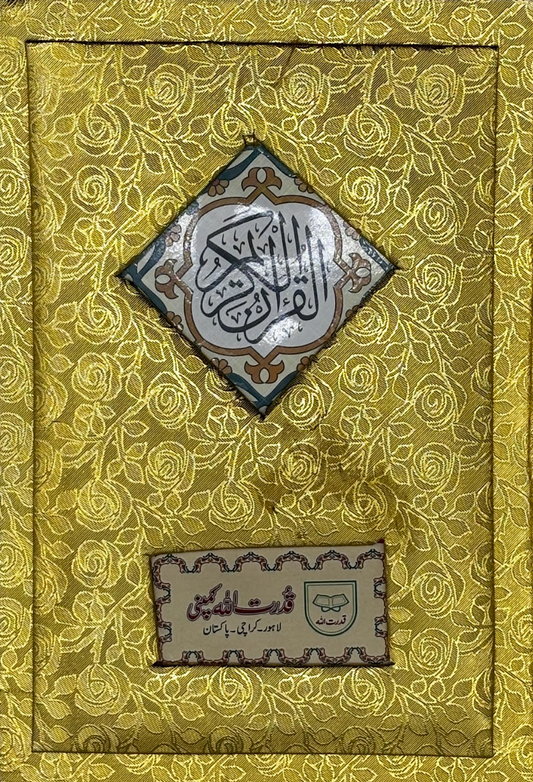 القرآن الكريم
قدرت اللہ کمپنی
لاہور۔کراچی۔پاکستان
قدرت اللہ